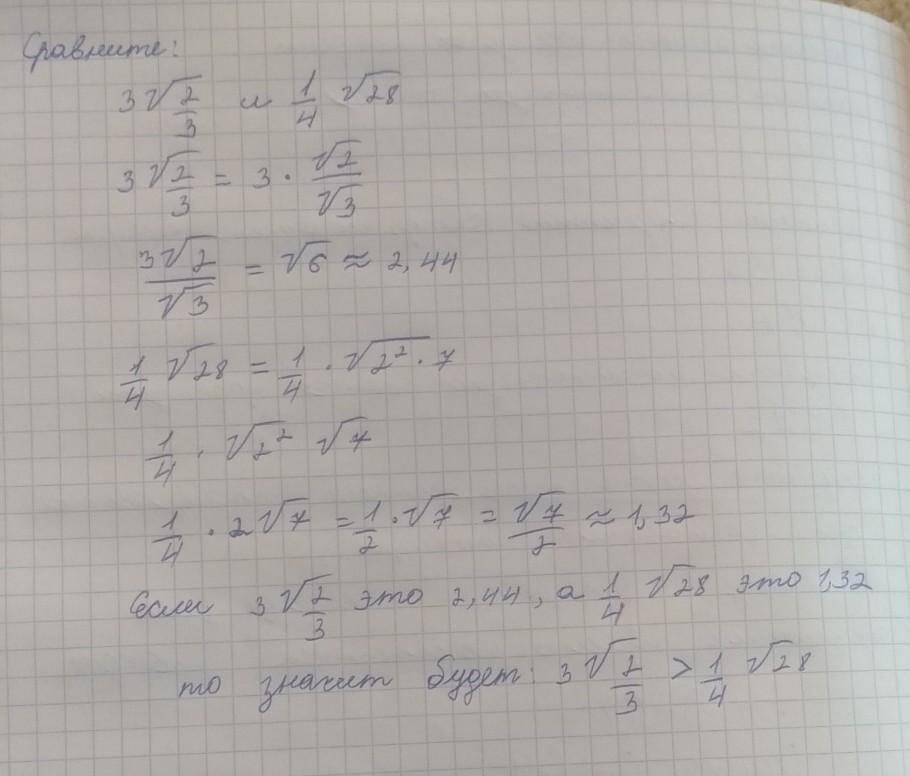 Сравните:
3√2/3 и 1/4 √28
3√2/3 = 3 · √2/√3
3√2/√3 = √6 ≈ 2,44
1/4 √28 = 1/4 · √2² · 7
1/4 · √2² √7
1/4 · 2√7 = 1/2 · √7 = √7/2 ≈ 1,32
Если 3√2/3 это 2,44, а 1/4 √28 это 1,32
то значит будет: 3√2/3 > 1/4 √28